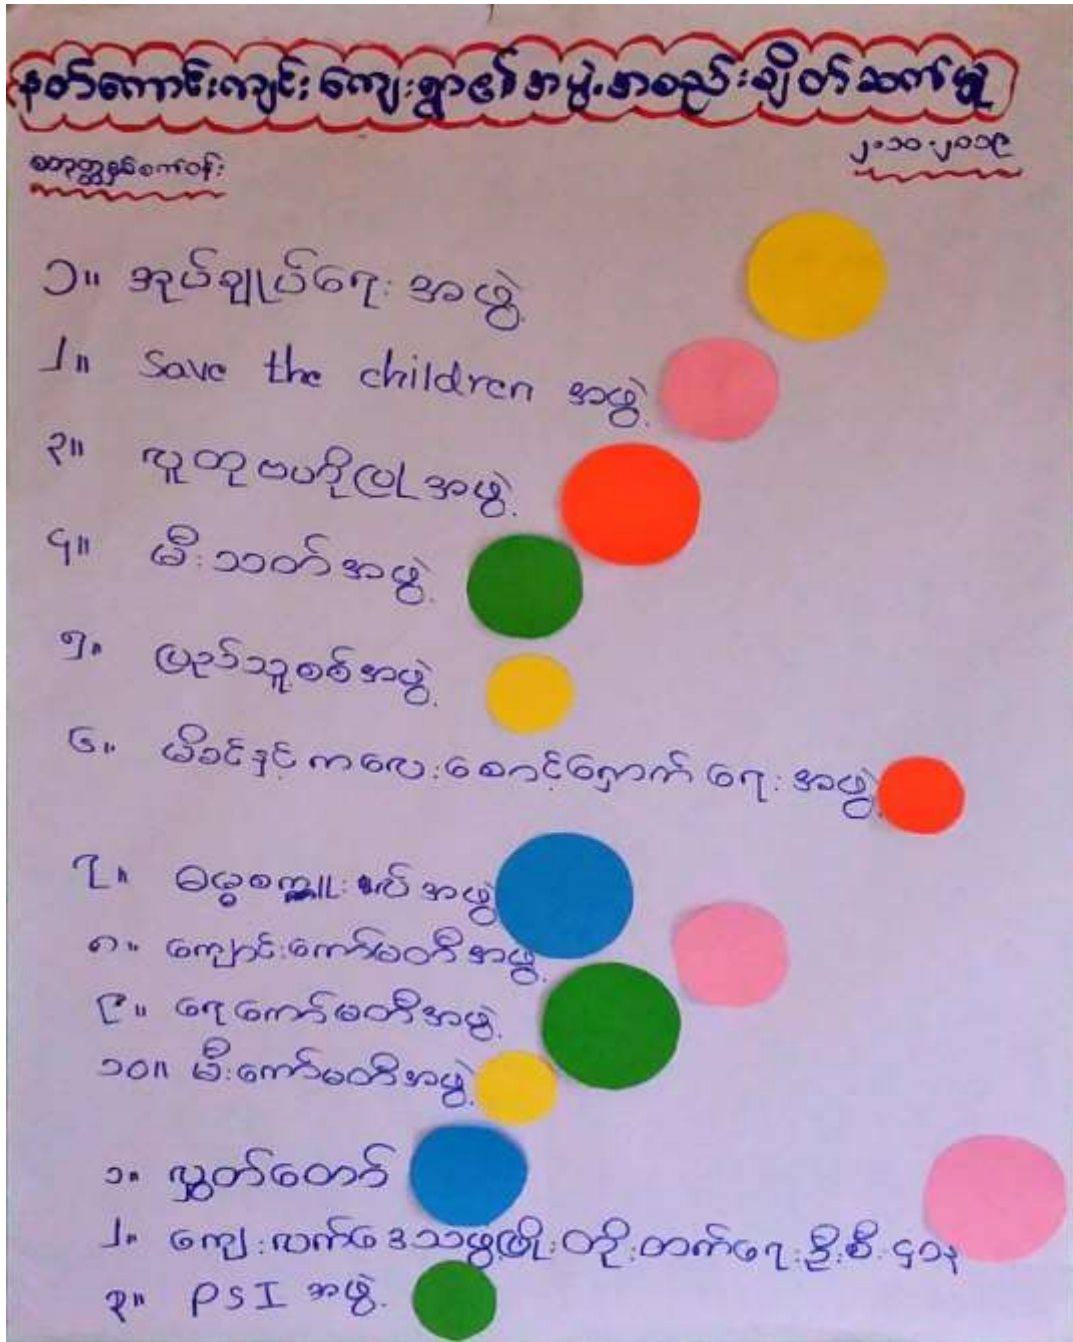 နတ်ကောင်းကျင်း ကျေးရွာ၏ အဖွဲ့အစည်းချိတ်ဆက်မှု
၂.၁၀.၂၀၁၉
စတုတ္ထနှစ်စက်ဝန်း
၁။ အုပ်ချုပ်ရေး အဖွဲ့
၂။ Save the children အဖွဲ့
၃။ လူထုဗဟိုပြု အဖွဲ့
၄။ မီးသတ်အဖွဲ့
၅။ ပြည်သူစစ်အဖွဲ့
၆။ မိခင်နှင့် ကလေးစောင့်ရှောက် ရေး အဖွဲ့
၇။ ဓမ္မစကြာ အဖွဲ့
၈။ ကျောင်းကော်မတီအဖွဲ့
၉။ ရေကော်မတီအဖွဲ့
၁၀။ မီးကော်မတီအဖွဲ့
၁။ လွှတ်တော်
၂။ ကျေးလက်ဒေသဖွံ့ဖြိုးတိုးတက်ရေးဦးစီး
၃။ PSI အဖွဲ့